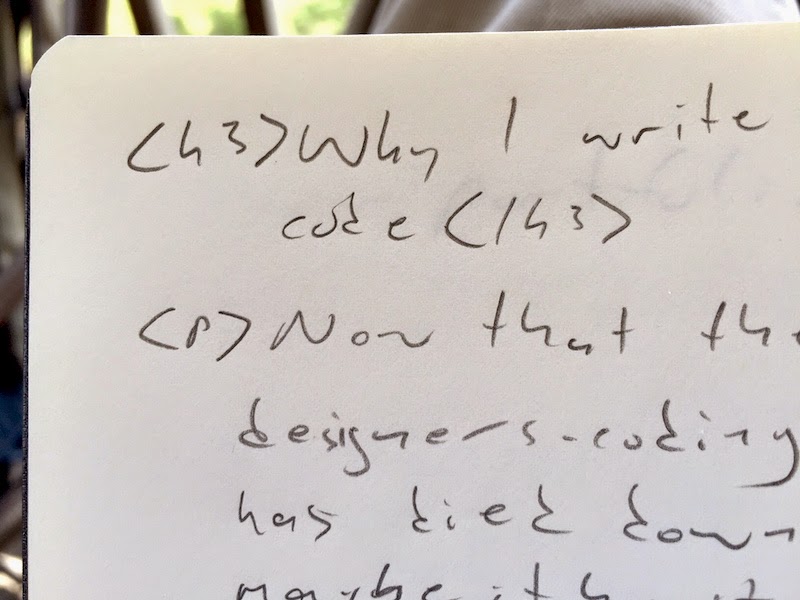 <h3>Why I write
code</h3>
<p>Now that the
designers-coding
has died down
maybe